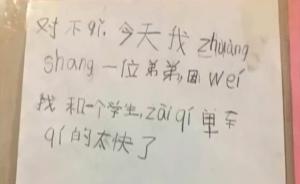 对不qǐ,今天我zhuàng
shang一位弟弟,因wèi
我和一个学生,zài qí单车
qí的太快了